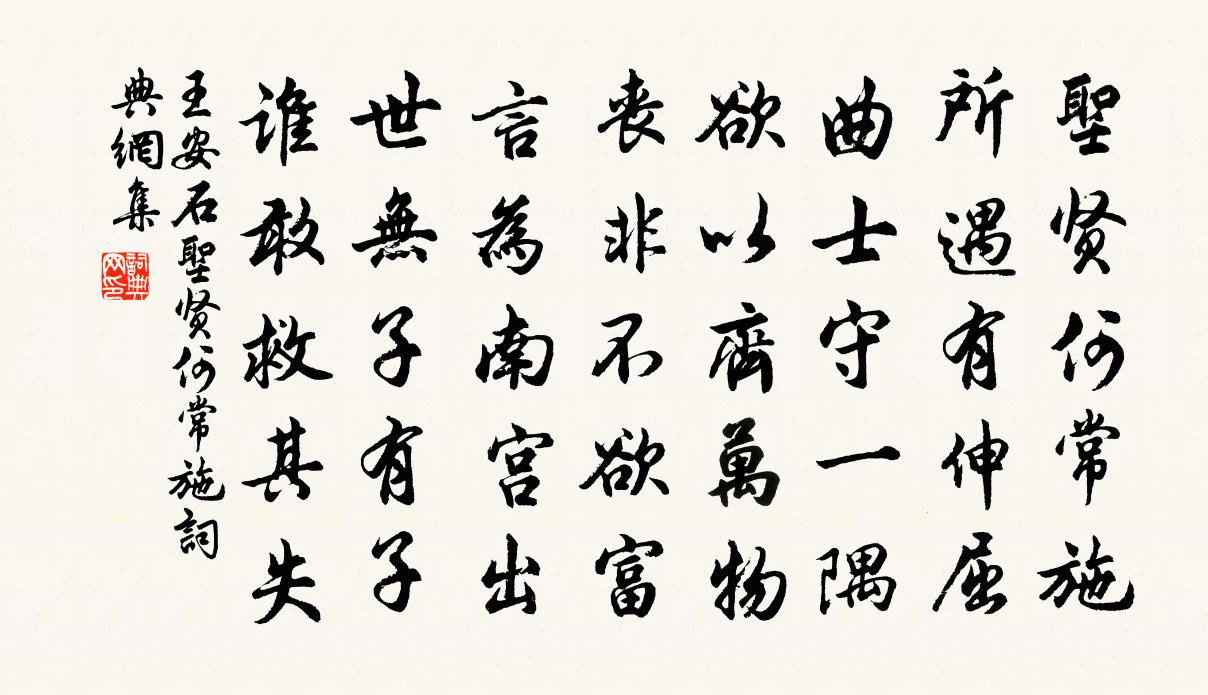 聖贤何常施
所遇有伸屈
曲士守一隅
欲以齊萬物
丧非不欲富
言為南宫出
世無子有子
誰敢救其失
王安石聖贤何常施詞
典網集
詞典网印